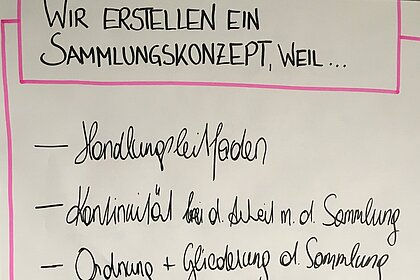 WIR ERSTELLEN EIN
SAMMLUNGSKONZEPT, WEIL...
— Handlungsleitfaden
— Kontinuität bei d. Arbeit m. d. Sammlung
— Ordnung + Gliederung d. Sammlung